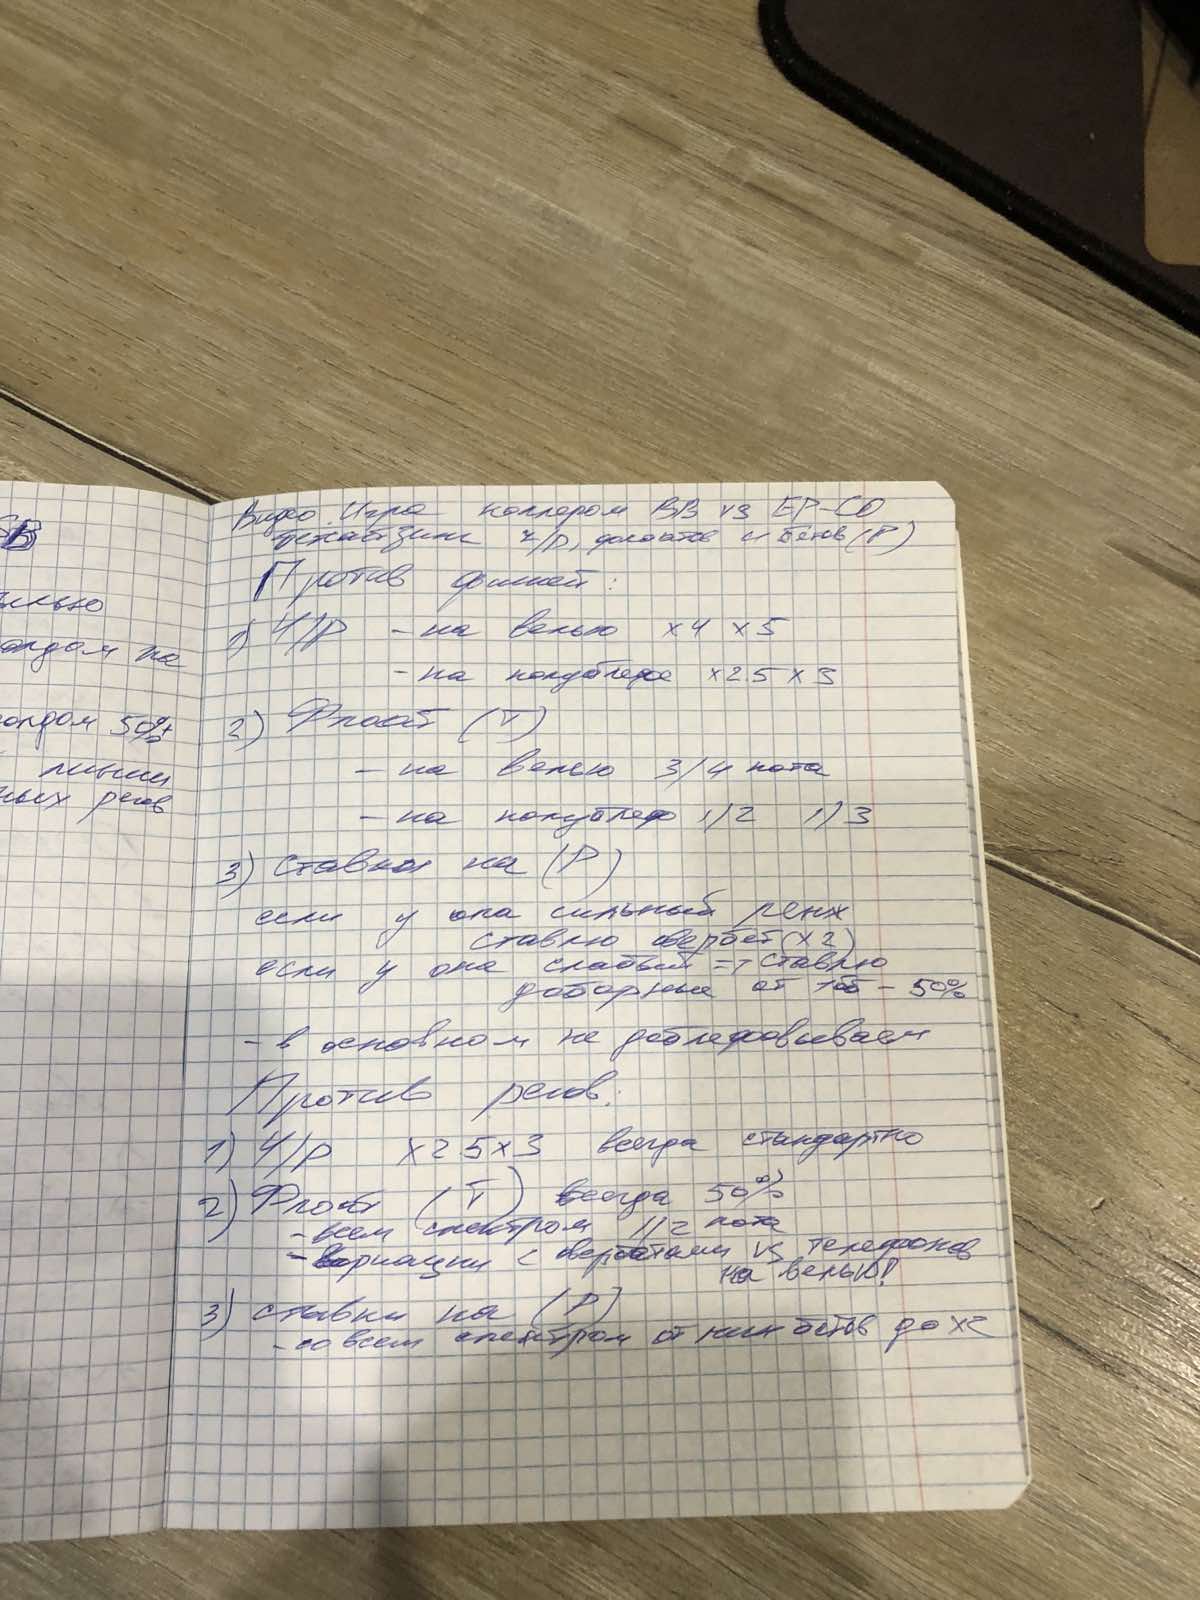 SB
олдом на
олдом 50%
регов
Видео. Игра коллером BB vs EP-CO
Ч/Р, флоатов и бетов (Р)
Против фишей:
1) Ч/Р - на велью х4 х5
- на полублефе х2.5 х3
2) Флоат (Т)
- на велью 3/4 пота
- на полублеф 1/2 1/3
3) Ставки на (Р)
если у опа сильный ренж
ставлю овербет (х2)
если у опа слабый => ставлю
доборные от 1бб - 50%
- в основном не доблефовываем
Против регов:
1) Ч/Р х2 5 х3 всегда стандартно
2) Флоат (Т) всегда 50%
- всем спектром 1/2 пота
- вариации с овербетами vs телефонов
на велью!
3) ставки на (Р)
- со всем спектром от минбетов до х2